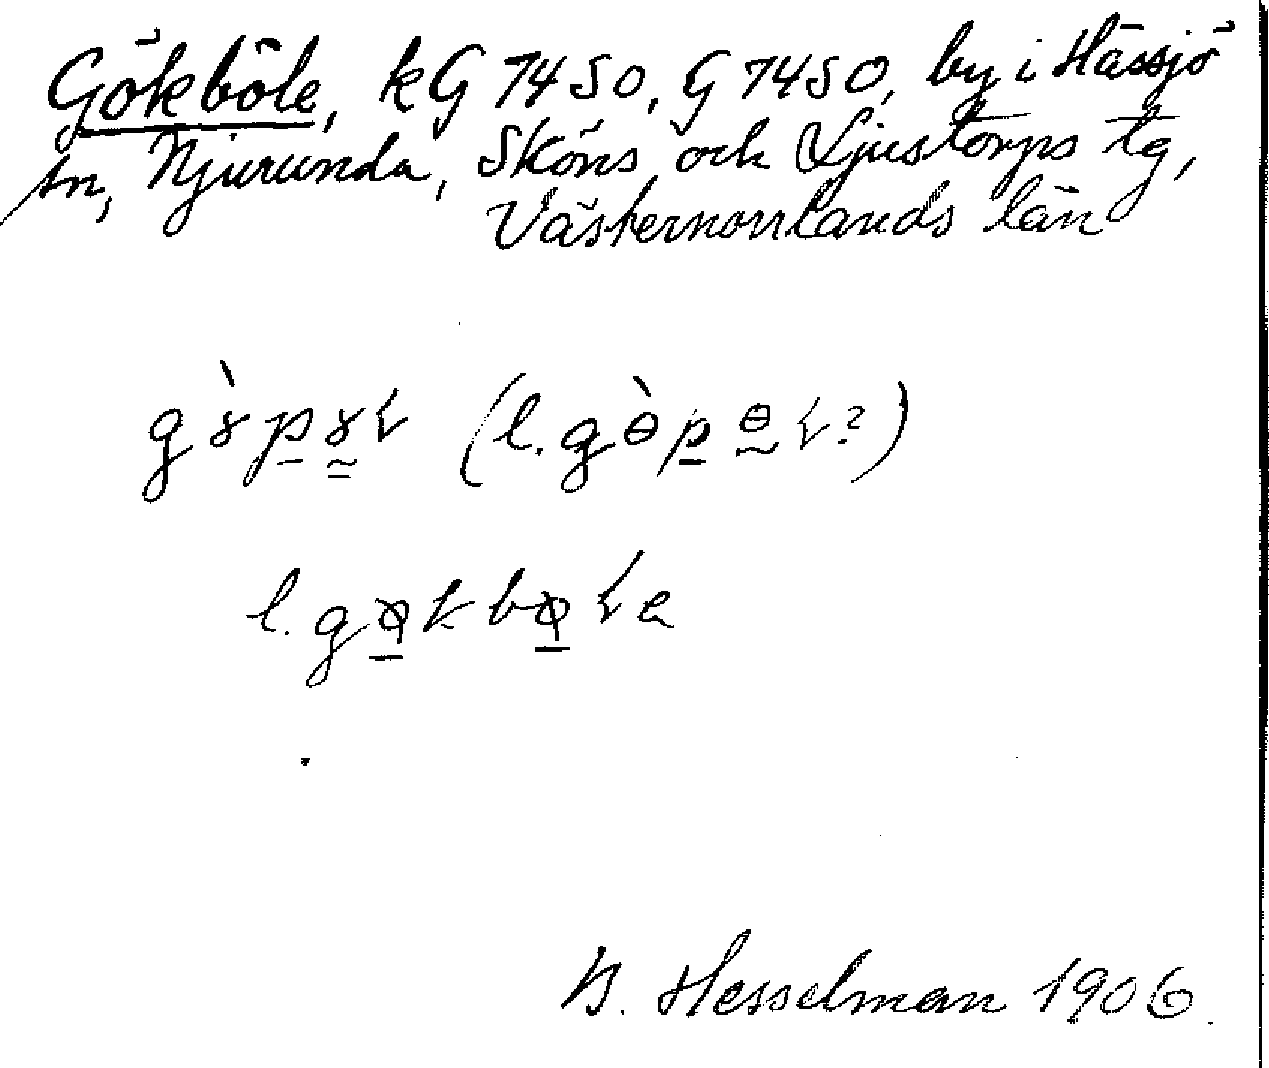 Gökböle, kG 7450, G 7450, by i Hässjö
sn, Njurunda, Sköns och Ljustorps tg,
Västernorrlands län
l. gökböle
B. Hesselman 1906.